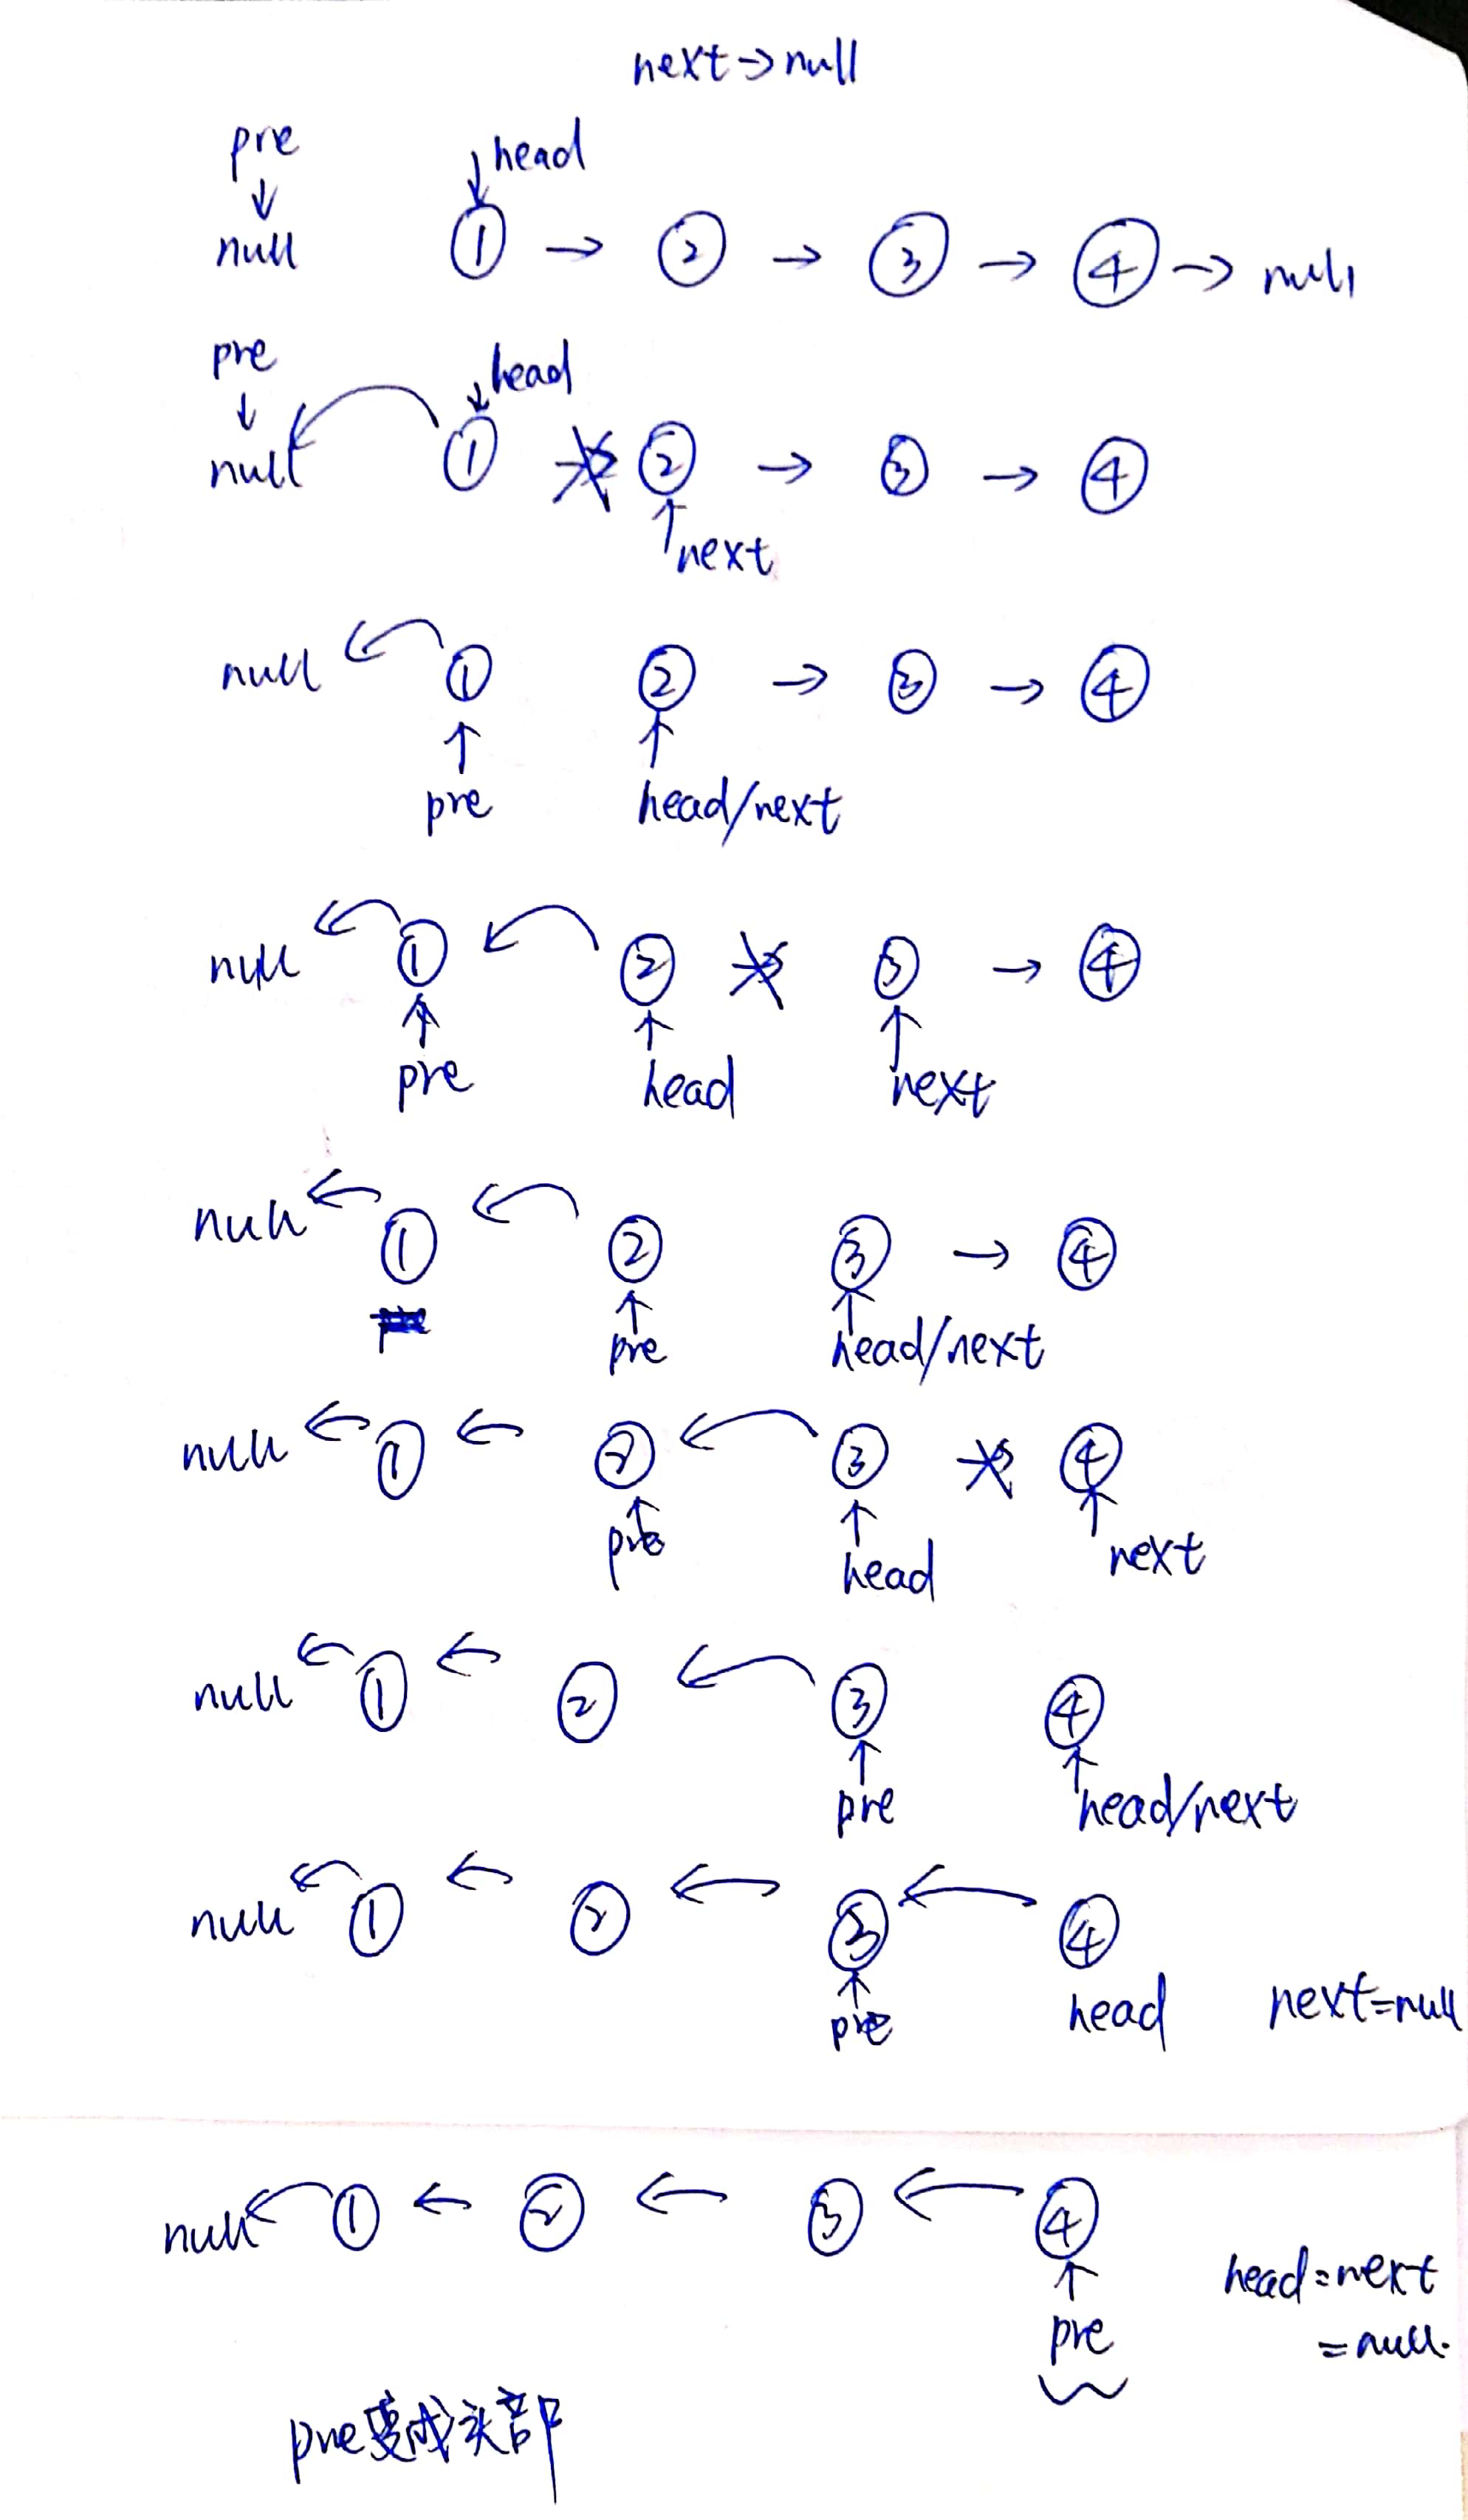 next→null
pre
↓head
↓
null ① → ② → ③ → ④ → null
pre
↓head
↓
null ① → ② → ③ → ④
↑next
null ← ① ② → ③ → ④
↑ ↑
pre head/next
null ← ① ← ② → ③ → ④
↑ ↑ ↑
pre head next
null ← ① ← ② ③ → ④
↑ ↑
pre head/next
null ← ① ← ② ← ③ → ④
↑ ↑ ↑
pre head next
null ← ① ← ② ← ③ ④
↑ ↑
pre head/next
null ← ① ← ② ← ③ ← ④
↑
pre head next=null
null ← ① ← ② ← ③ ← ④
↑ head=next
pre =null.
pre变成头部